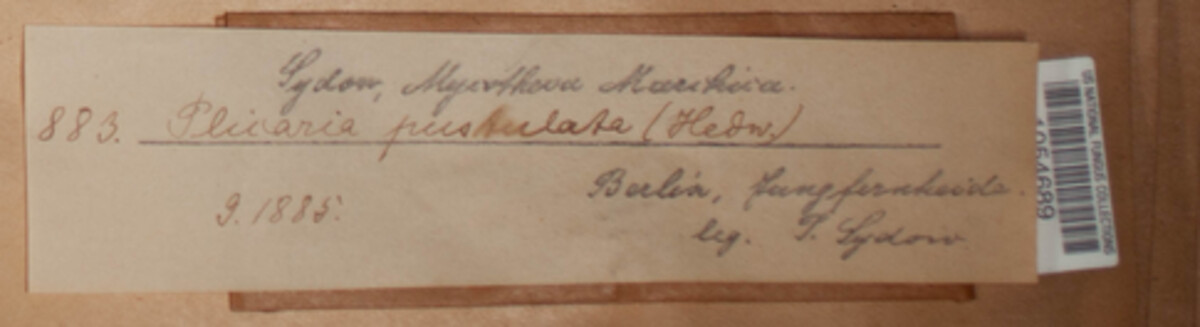 Sydow, Mycotheca Marchica.
883. Plicaria pustulata (Hedw.)
9. 1885.
Berlin, Jungfernheide.
leg. P. Sydow
US NATIONAL FUNGUS COLLECTIONS
1054689